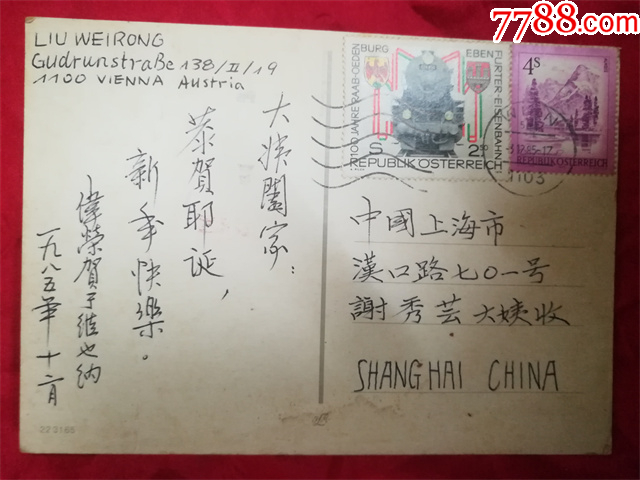 7788.com
LIU WEIRONG
Gudrunstraße 138/II/19
1100 VIENNA Austria
大姨闔家：
恭賀耶诞，
新年快樂。
偉榮賀于維也纳
一九八五年十二月
BURG
EBEN
100 JAHRE RAAB-OEDEN
FURTER-EISENBAHN
S
2.50
REPUBLIK ÖSTERREICH
4S
REPUBLIK ÖSTERREICH
.85-17
1103
中國上海市
漢口路七0一号
謝秀芸大姨收
SHANGHAI CHINA
22 3165